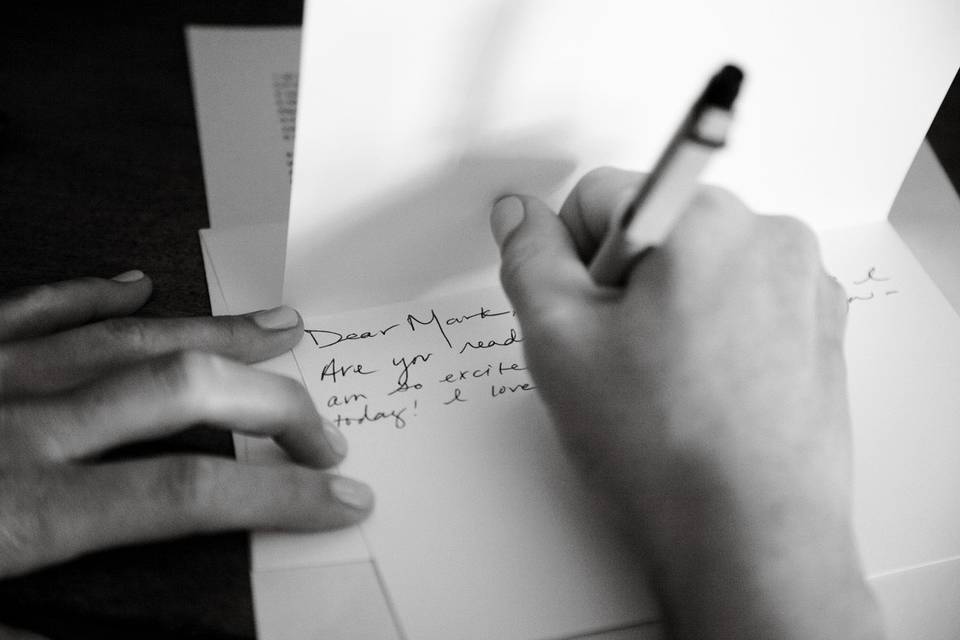 Dear Mark,
Are you read I
am so excite
today! I love